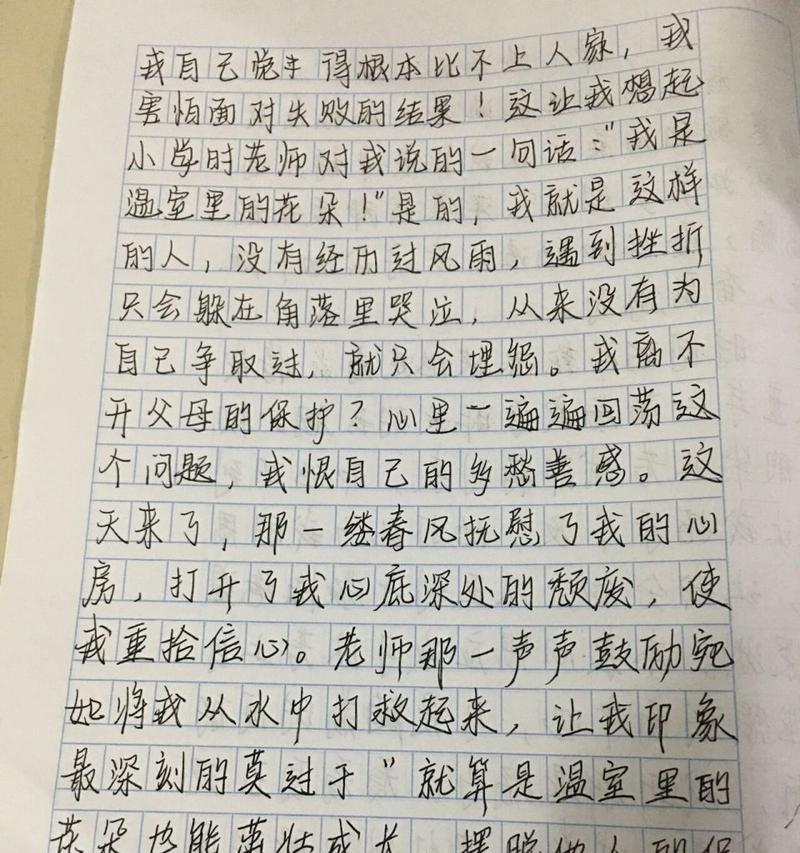 我自己觉得根本比不上人家，我
害怕面对失败的结果！这让我想起
小学时老师对我说的一句话：“我是
温室里的花朵！”是的，我就是这样
的人，没有经历过风雨，遇到挫折
只会躲在角落里哭泣，从来没有为
自己争取过，就只会埋怨。我离不
开父母的保护？心里一遍遍回荡这
个问题，我恨自己的多愁善感。这
天来了，那一缕春风抚慰了我的心
房，打开了我心底深处的颓废，使
我重拾信心。老师那一声声鼓励宛
如将我从水中打救起来，让我印象
最深刻的莫过于“就算是温室里的
花朵也能茁壮成长，摆脱他人的保